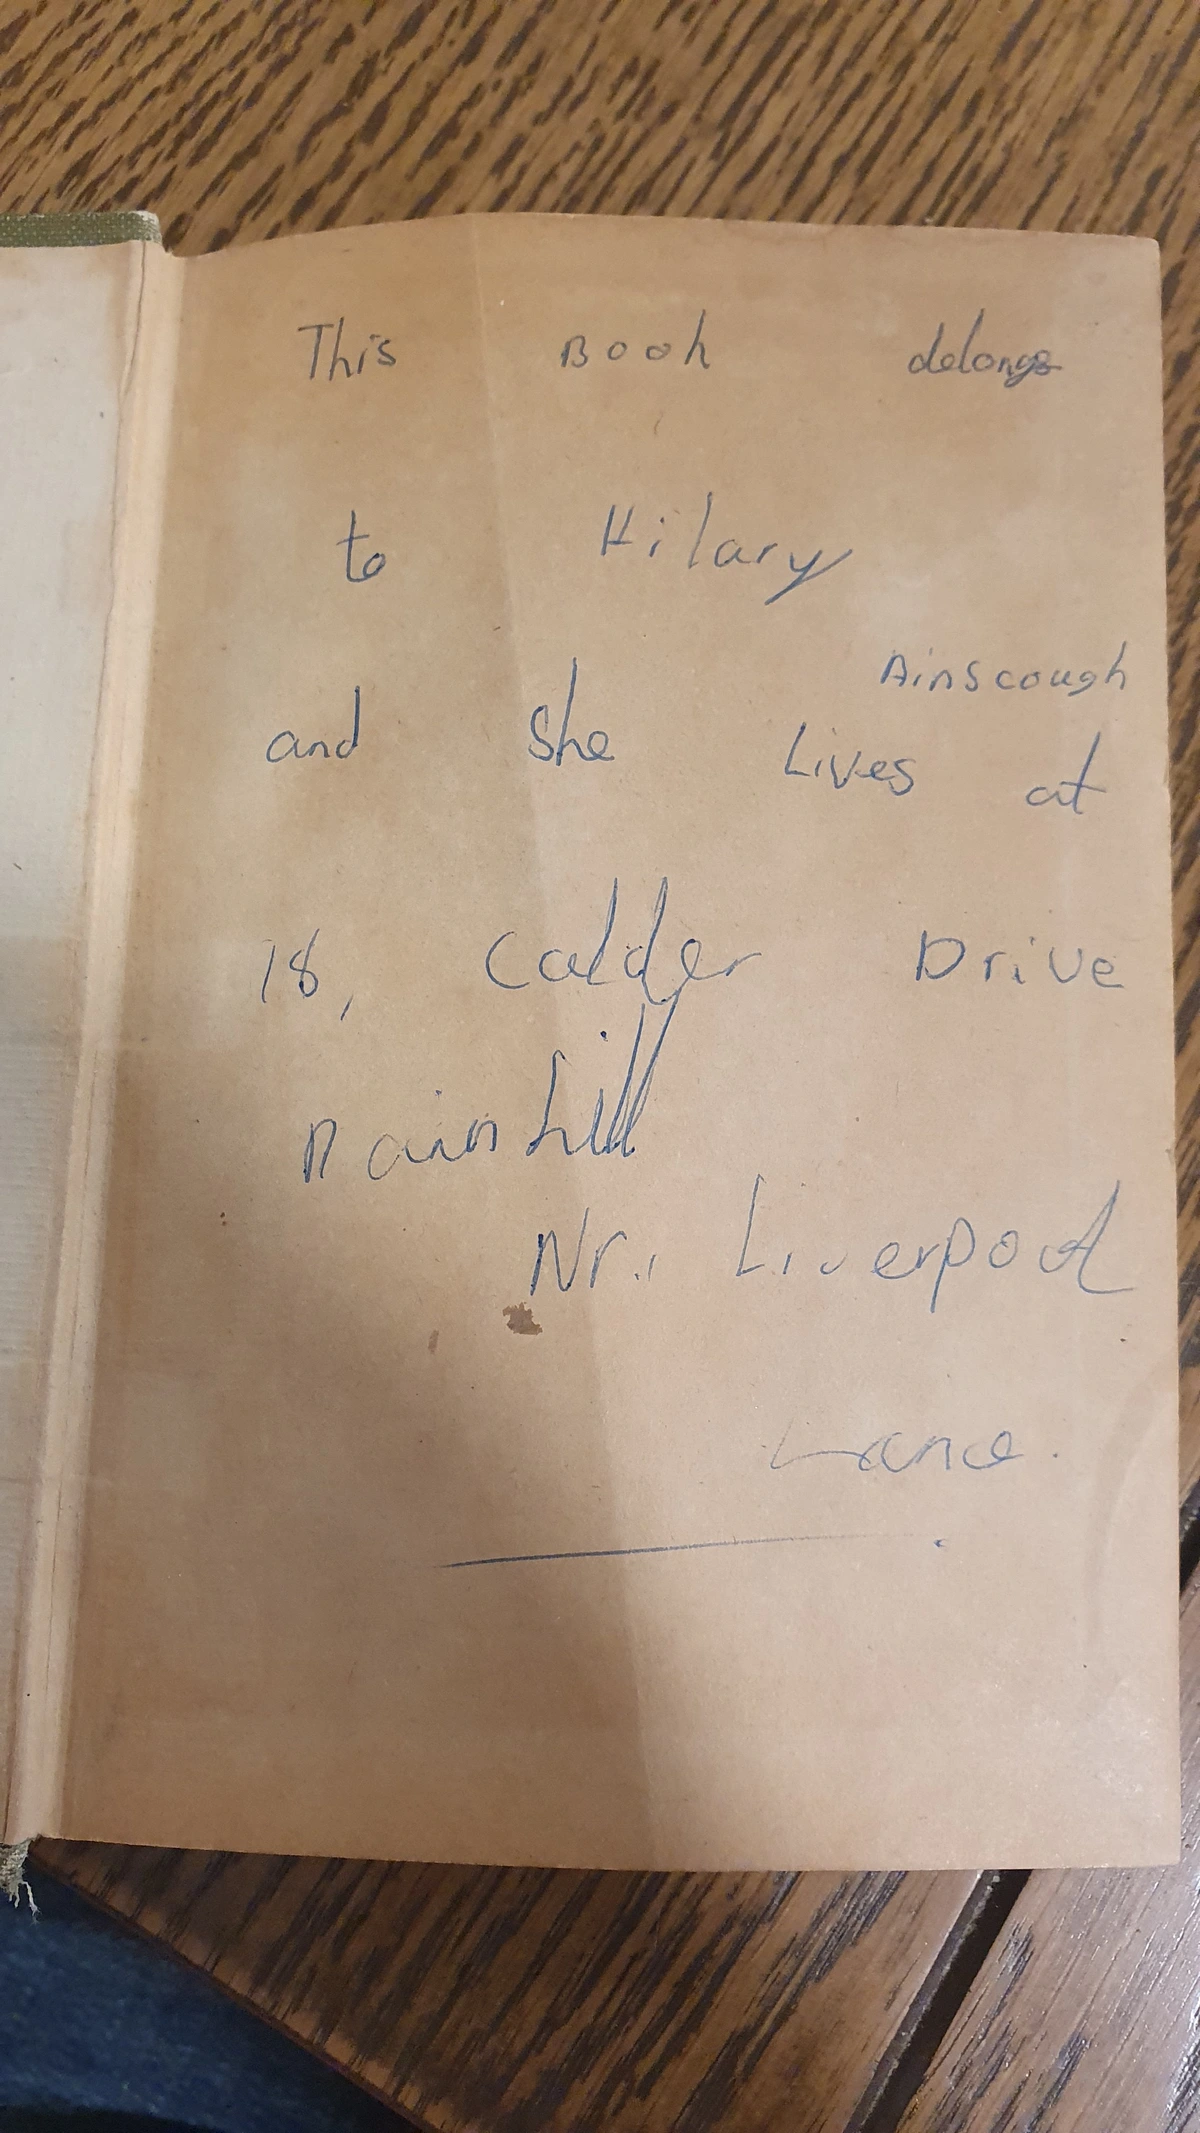 This Book delongs
to Hilary
Ainscough
and She Lives at
18, Calder Drive
Rainhill
Nr. Liverpool
Lance.